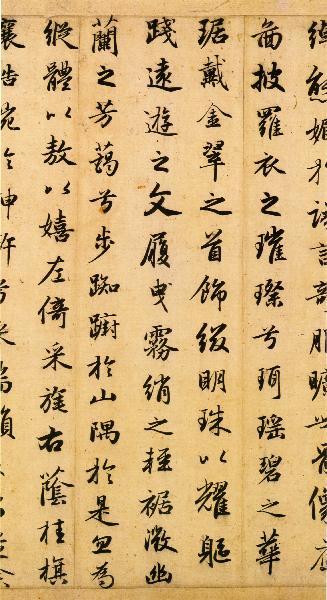 態媚於語言奇服曠世骨像
圖披羅衣之璀璨兮珥瑤碧之華
琚戴金翠之首飾綴明珠以耀軀
踐遠遊之文履曳霧綃之輕裾微幽
蘭之芳藹兮步踟躕於山隅於是忽焉
縱體以敖以嬉左倚采旄右蔭桂旗
襄皓宛於神滸兮采湍瀨